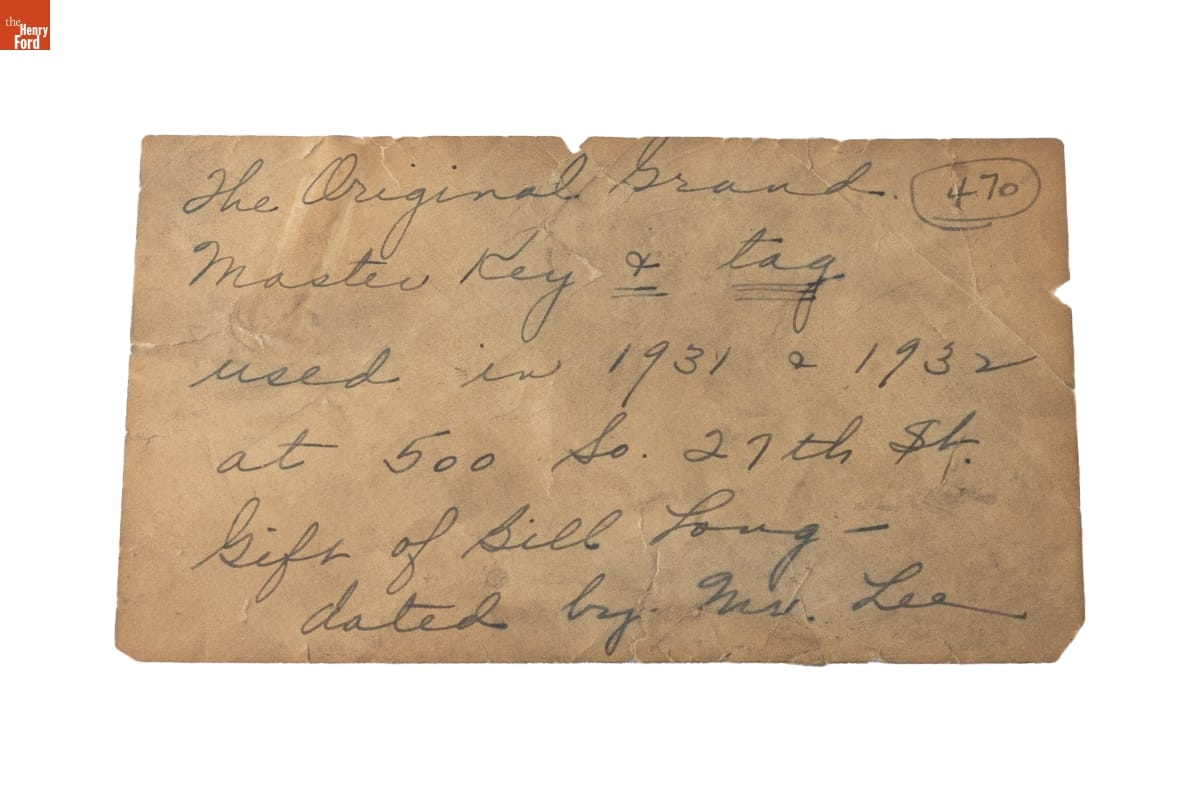 the
Henry
Ford
The Original Grand. 470
Master Key & tag
used in 1931 & 1932
at 500 So. 27th St.
Gift of Bill Long -
dated by Mr. Lee